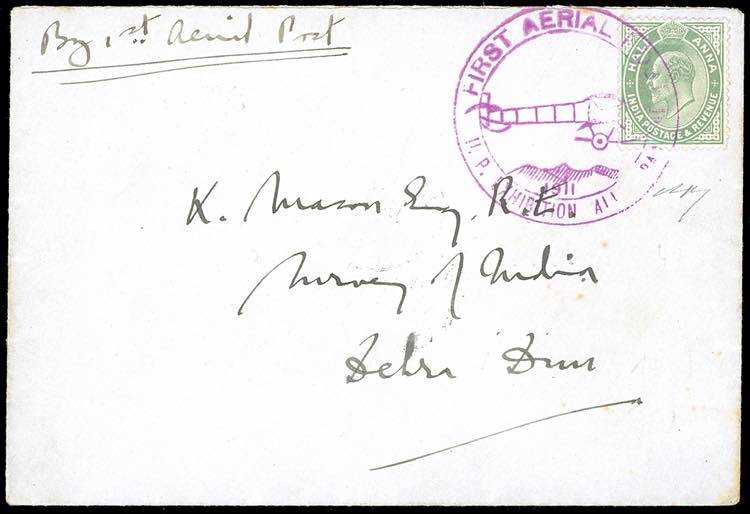 By 1st Aerial Post
FIRST AERIAL
HALF ANNA
INDIA POSTAGE & REVENUE
1911
U. P. EXHIBITION ALL
K. Mason Esq. R.E.
Survey of India
Dehra Dun